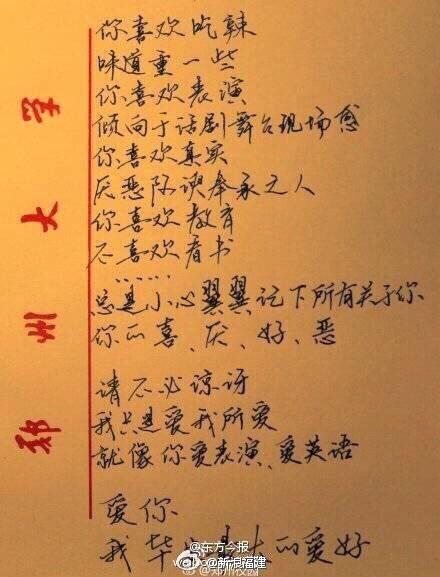 郑州大学
你喜欢吃辣
味道重一些
你喜欢表演
倾向于话剧舞台现场感
你喜欢真实
厌恶阿谀奉承之人
你喜欢教育
不喜欢看书
……
总是小心翼翼记下所有关于你
你的喜、厌、好、恶
请不必惊讶
我只是爱我所爱
就像你爱表演、爱英语
爱你
我毕大的爱好
@东方今报
@新浪福建